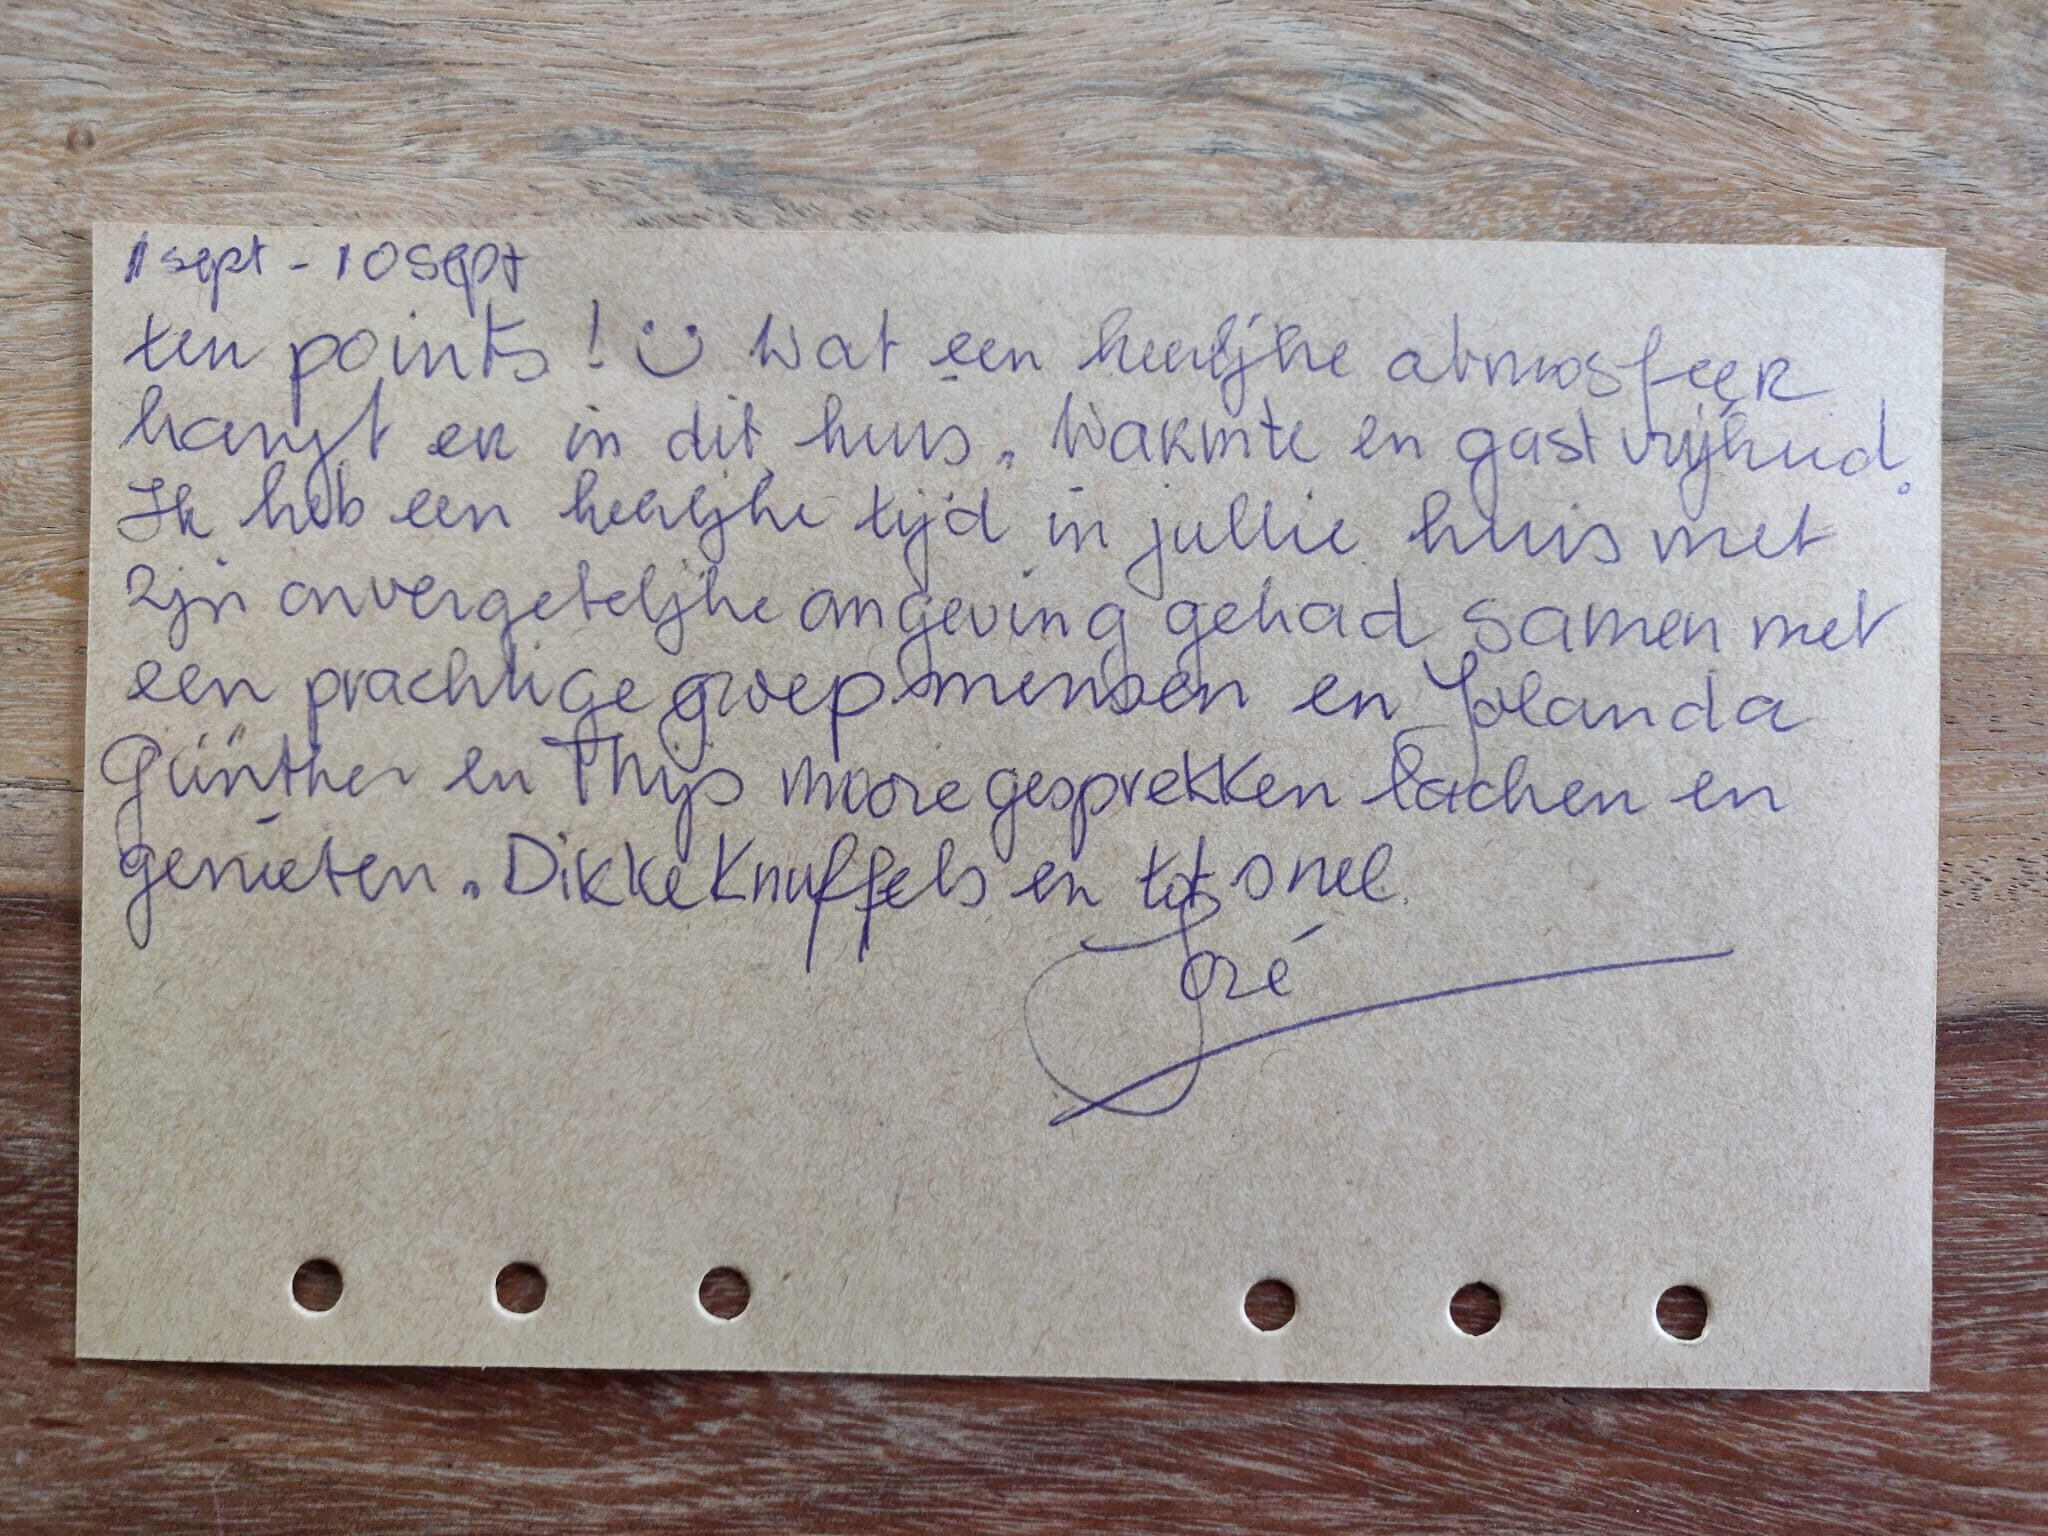 1 sept - 10 sept
ten points! Wat een heerlijke atmosfeer
hangt er in dit huis. Warmte en gastvrijheid.
Ik heb een heerlijke tijd in jullie huis met
zijn onvergetelijke omgeving gehad samen met
een prachtige groep mensen en Jolanda
Günther en Thijs mooie gesprekken lachen en
genieten. Dikke Knuffels en tot snel
José